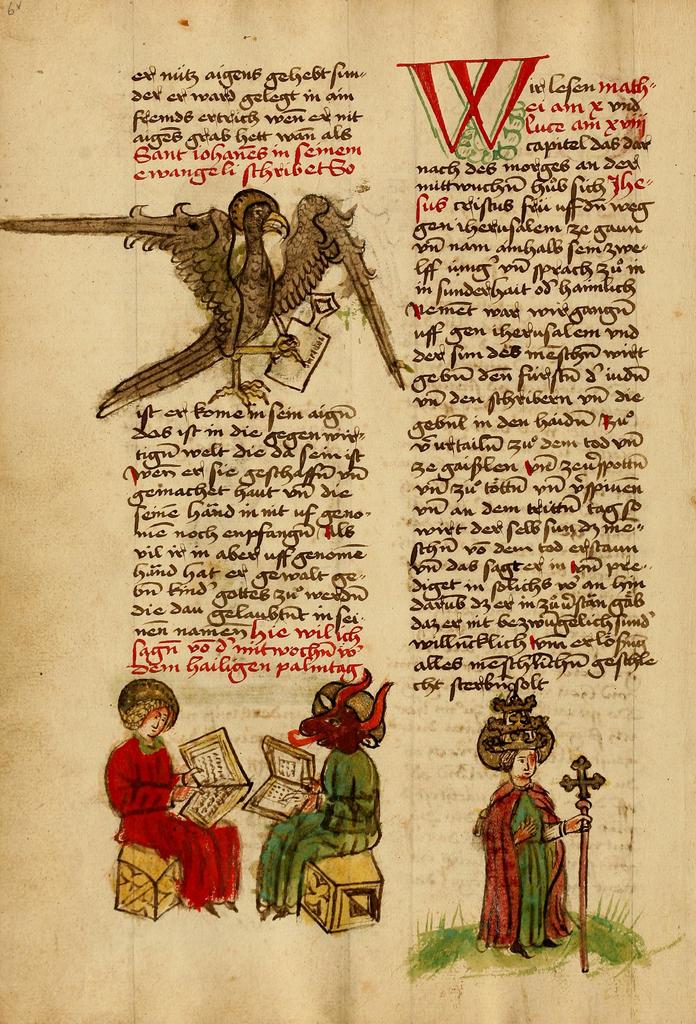 6v
er nütz aigens gehebt sun-
der er ward gelegt in ain
fremds ertrich wen er nit
aiges grab hett wan als
Sant iohanes in seinem
ewangeli schribet So
ist er kome in sein aigñ
das ist in die gegen wir-
tigñ welt die da sein ist
wen er sie geschaffñ vñ
gemachet haut vñ die
seine händ in nit vf geno-
me noch enpfangñ Als
vil ir in aber uff genome
händ hat er gewalt ge-
bñ kind gottes zu werdñ
die dau gelaubtñt in sei-
nen namen hie wil ich
sagñ vo d mitwochñ vor
dem hailigen palmtag
Wir lesen math-
ei am x vnd
luce am xviij
capitel das dar
nach des morges an der
mittwuchñ hüb sich Jhe-
sus cristus frü uff dñ weg
gen iherusalem ze gaun
vñ nam ainhalb sein zwe-
lff iung vñ sprach zu in
in sunderhait od haimlich
Nemet war wir gangñ
uff gen iherusalem vnd
der sun des meschñ wirt
gebñ den fürstñ d iudñ
vñ den schribern vñ die
gebñt in den haidñ zu
vurtailñ zu dem tod vñ
ze gaißlen vñ zeuspottñ
vñ zu töttñ vñ vspiuen
vñ an dem trittñ tag so
wirt der selb sun dz me-
schñ vo dem tod erstaun
vñ das sagt er in vñ pre-
diget in solichs
darub dz er in zu
daz er nit bezwuglich sund
willncklich vm erlösug
alles meschlichñ geschle
cht sterbñ solt